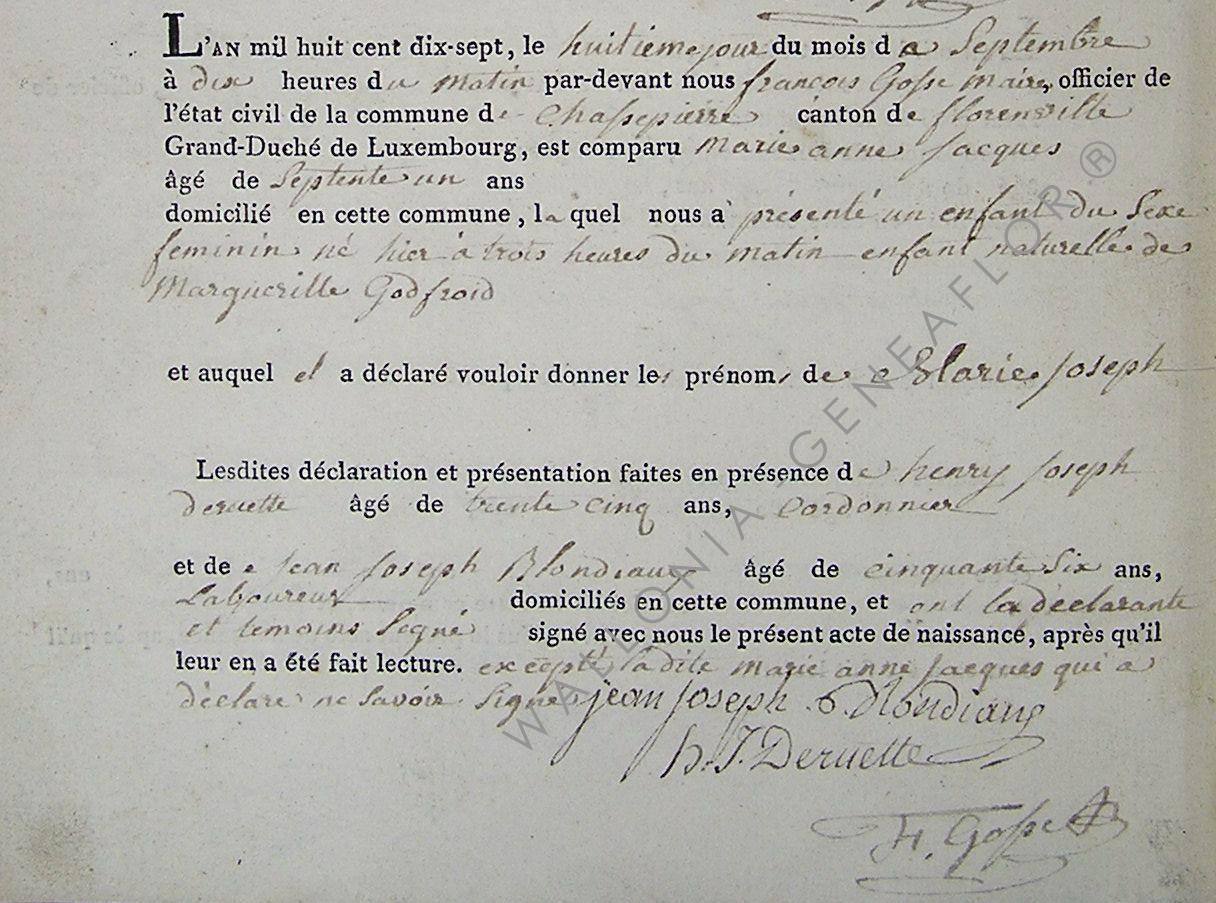 L'AN mil huit cent dix-sept, le huitieme jour du mois de Septembre
à dix heures du matin par-devant nous françois Gosse maire, officier de
l'état civil de la commune de Chassepierre canton de florenville
Grand-Duché de Luxembourg, est comparu Marie anne Jacques
âgé de Septente un ans
domicilié en cette commune, laquel nous a présenté un enfant du Sexe
feminin né hier à trois heures du matin enfant naturelle de
Marguerille Godfroid
et auquel el a déclaré vouloir donner les prénoms de Marie Joseph
Lesdites déclaration et présentation faites en présence de henry Joseph
Deruette âgé de trente cinq ans, Cordonnier
et de Jean Joseph Blondiaux âgé de cinquante Six ans,
Laboureur domiciliés en cette commune, et ont la déclarante
et temoins Segné signé avec nous le présent acte de naissance, après qu'il
leur en a été fait lecture. excepté la dite marie anne Jacques qui a
déclaré ne savoir Signe jean joseph Blondiaux
h. J. Deruette
F. Gosse
WALLONIA GENEAFLOR ®